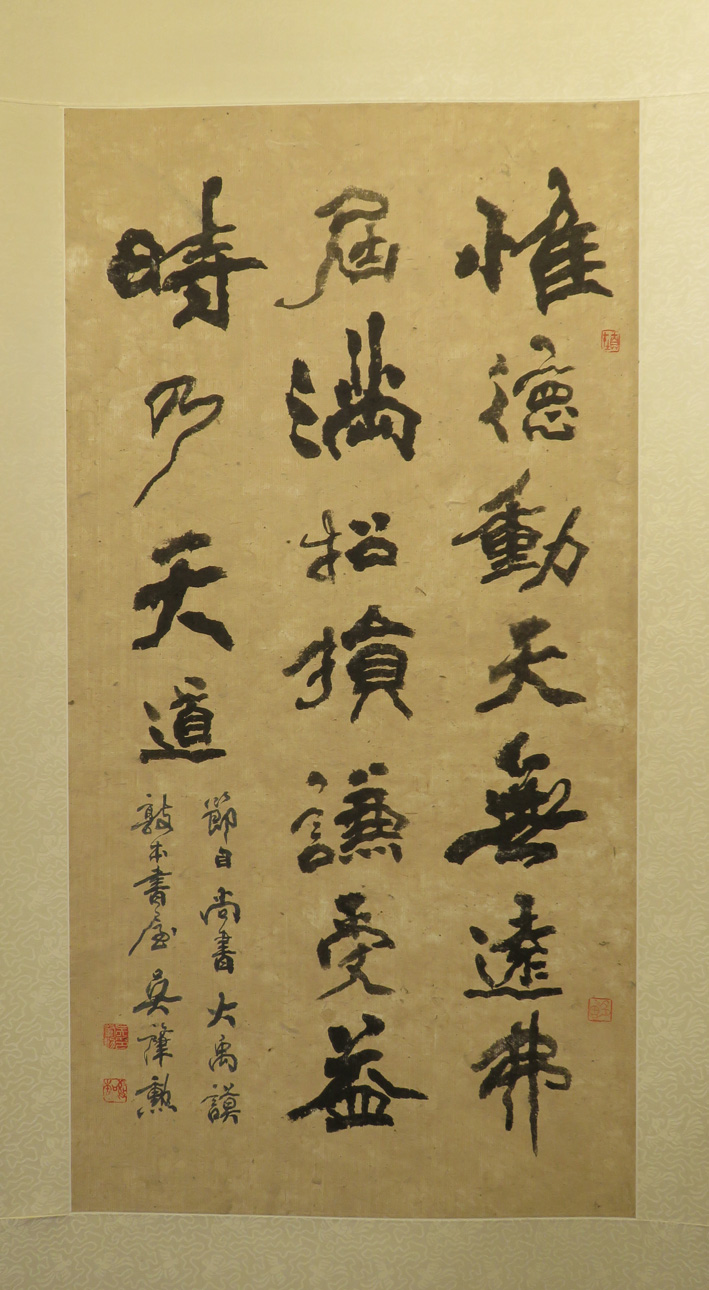 惟德動天無遠弗
屆滿招損謙受益
時乃天道
節自尚書大禹謨
敲本書屋吳肇勳